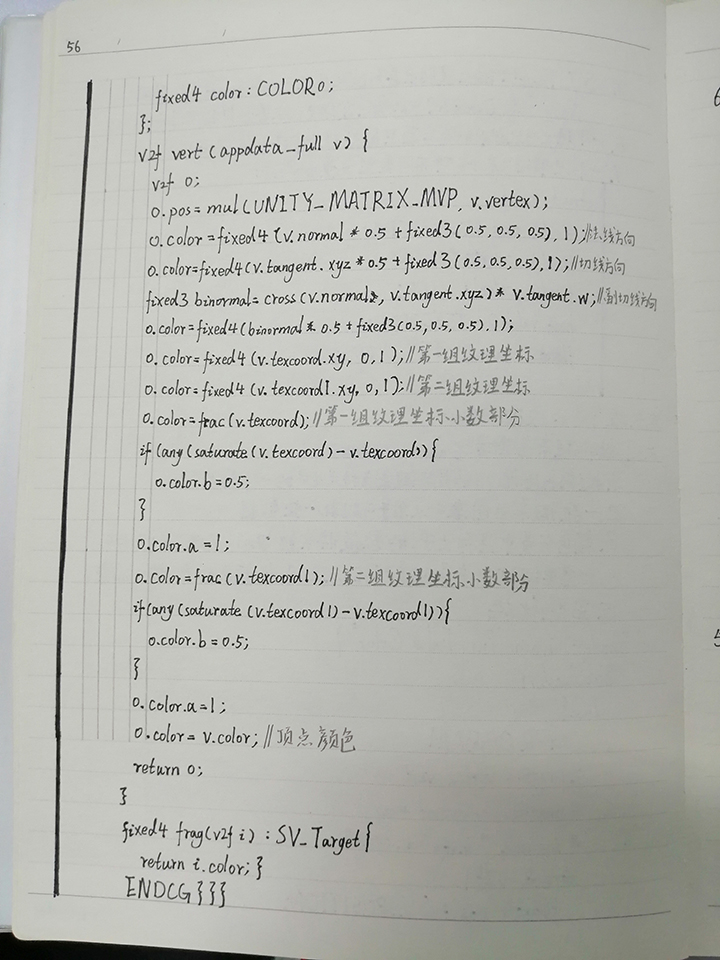 56
fixed4 color : COLOR0;
};
v2f vert (appdata_full v) {
v2f o;
o.pos = mul(UNITY_MATRIX_MVP, v.vertex);
o.color = fixed4 (v.normal * 0.5 + fixed3(0.5, 0.5, 0.5), 1); //法线方向
o.color = fixed4(v.tangent.xyz * 0.5 + fixed3(0.5, 0.5, 0.5), 1); //切线方向
fixed3 binormal = cross (v.normal, v.tangent.xyz) * v.tangent.w; //副切线方向
o.color = fixed4(binormal * 0.5 + fixed3(0.5, 0.5, 0.5), 1);
o.color = fixed4 (v.texcoord.xy, 0, 1); //第一组纹理坐标
o.color = fixed4 (v.texcoord1.xy, 0, 1); //第二组纹理坐标
o.color = frac(v.texcoord); //第一组纹理坐标小数部分
if (any(saturate(v.texcoord) - v.texcoord)) {
o.color.b = 0.5;
}
o.color.a = 1;
o.color = frac(v.texcoord1); //第二组纹理坐标小数部分
if(any(saturate(v.texcoord1) - v.texcoord1)){
o.color.b = 0.5;
}
o.color.a = 1;
o.color = v.color; //顶点颜色
return o;
}
fixed4 frag(v2f i) : SV_Target{
return i.color; }
ENDCG}}}